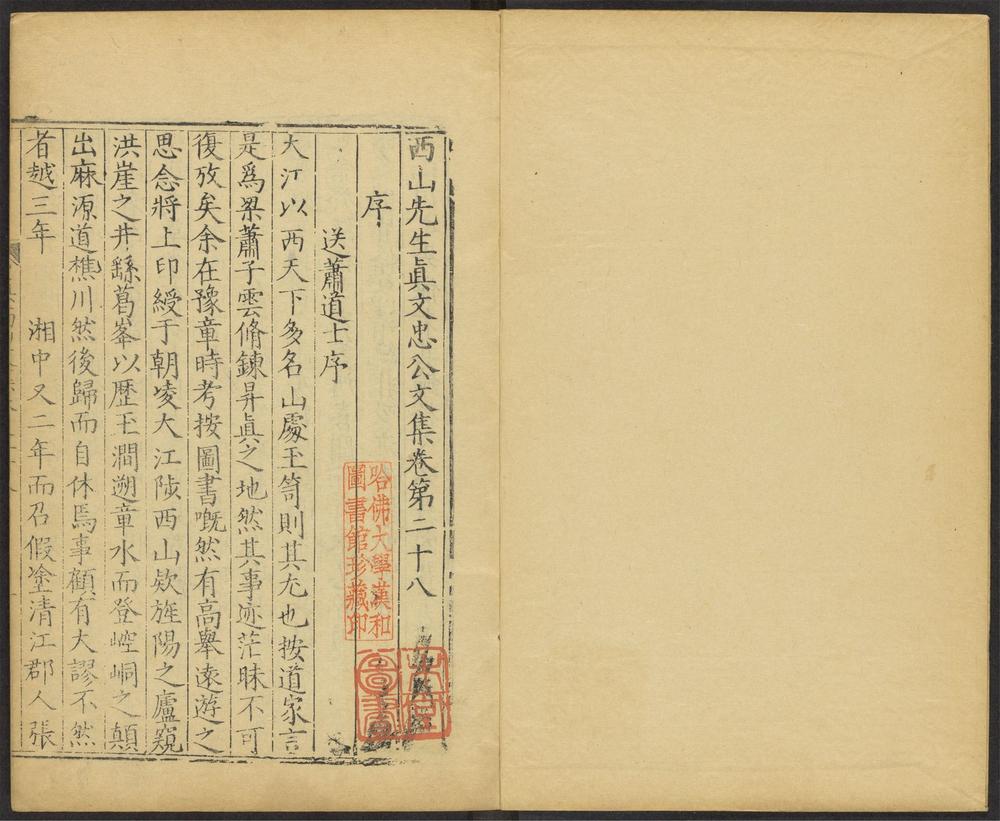 西山先生眞文忠公文集卷第二十八
序
送蕭道士序
大江以西天下多名山處玉笥則其尤也按道家言
是爲梁蕭子雲脩鍊昇眞之地然其事迹茫昧不可
復攷矣余在豫章時考按圖書慨然有高舉遠遊之
思念將上印綬于朝凌大江陟西山欵旌陽之廬窺
洪崖之井繇葛峯以歷玉澗遡章水而登崆峒之顛
出麻源道樵川然後歸而自休焉事顧有大謬不然
者越三年 湘中又二年而召假塗清江郡人張
哈佛大學漢和
圖書館珍藏印
圖書